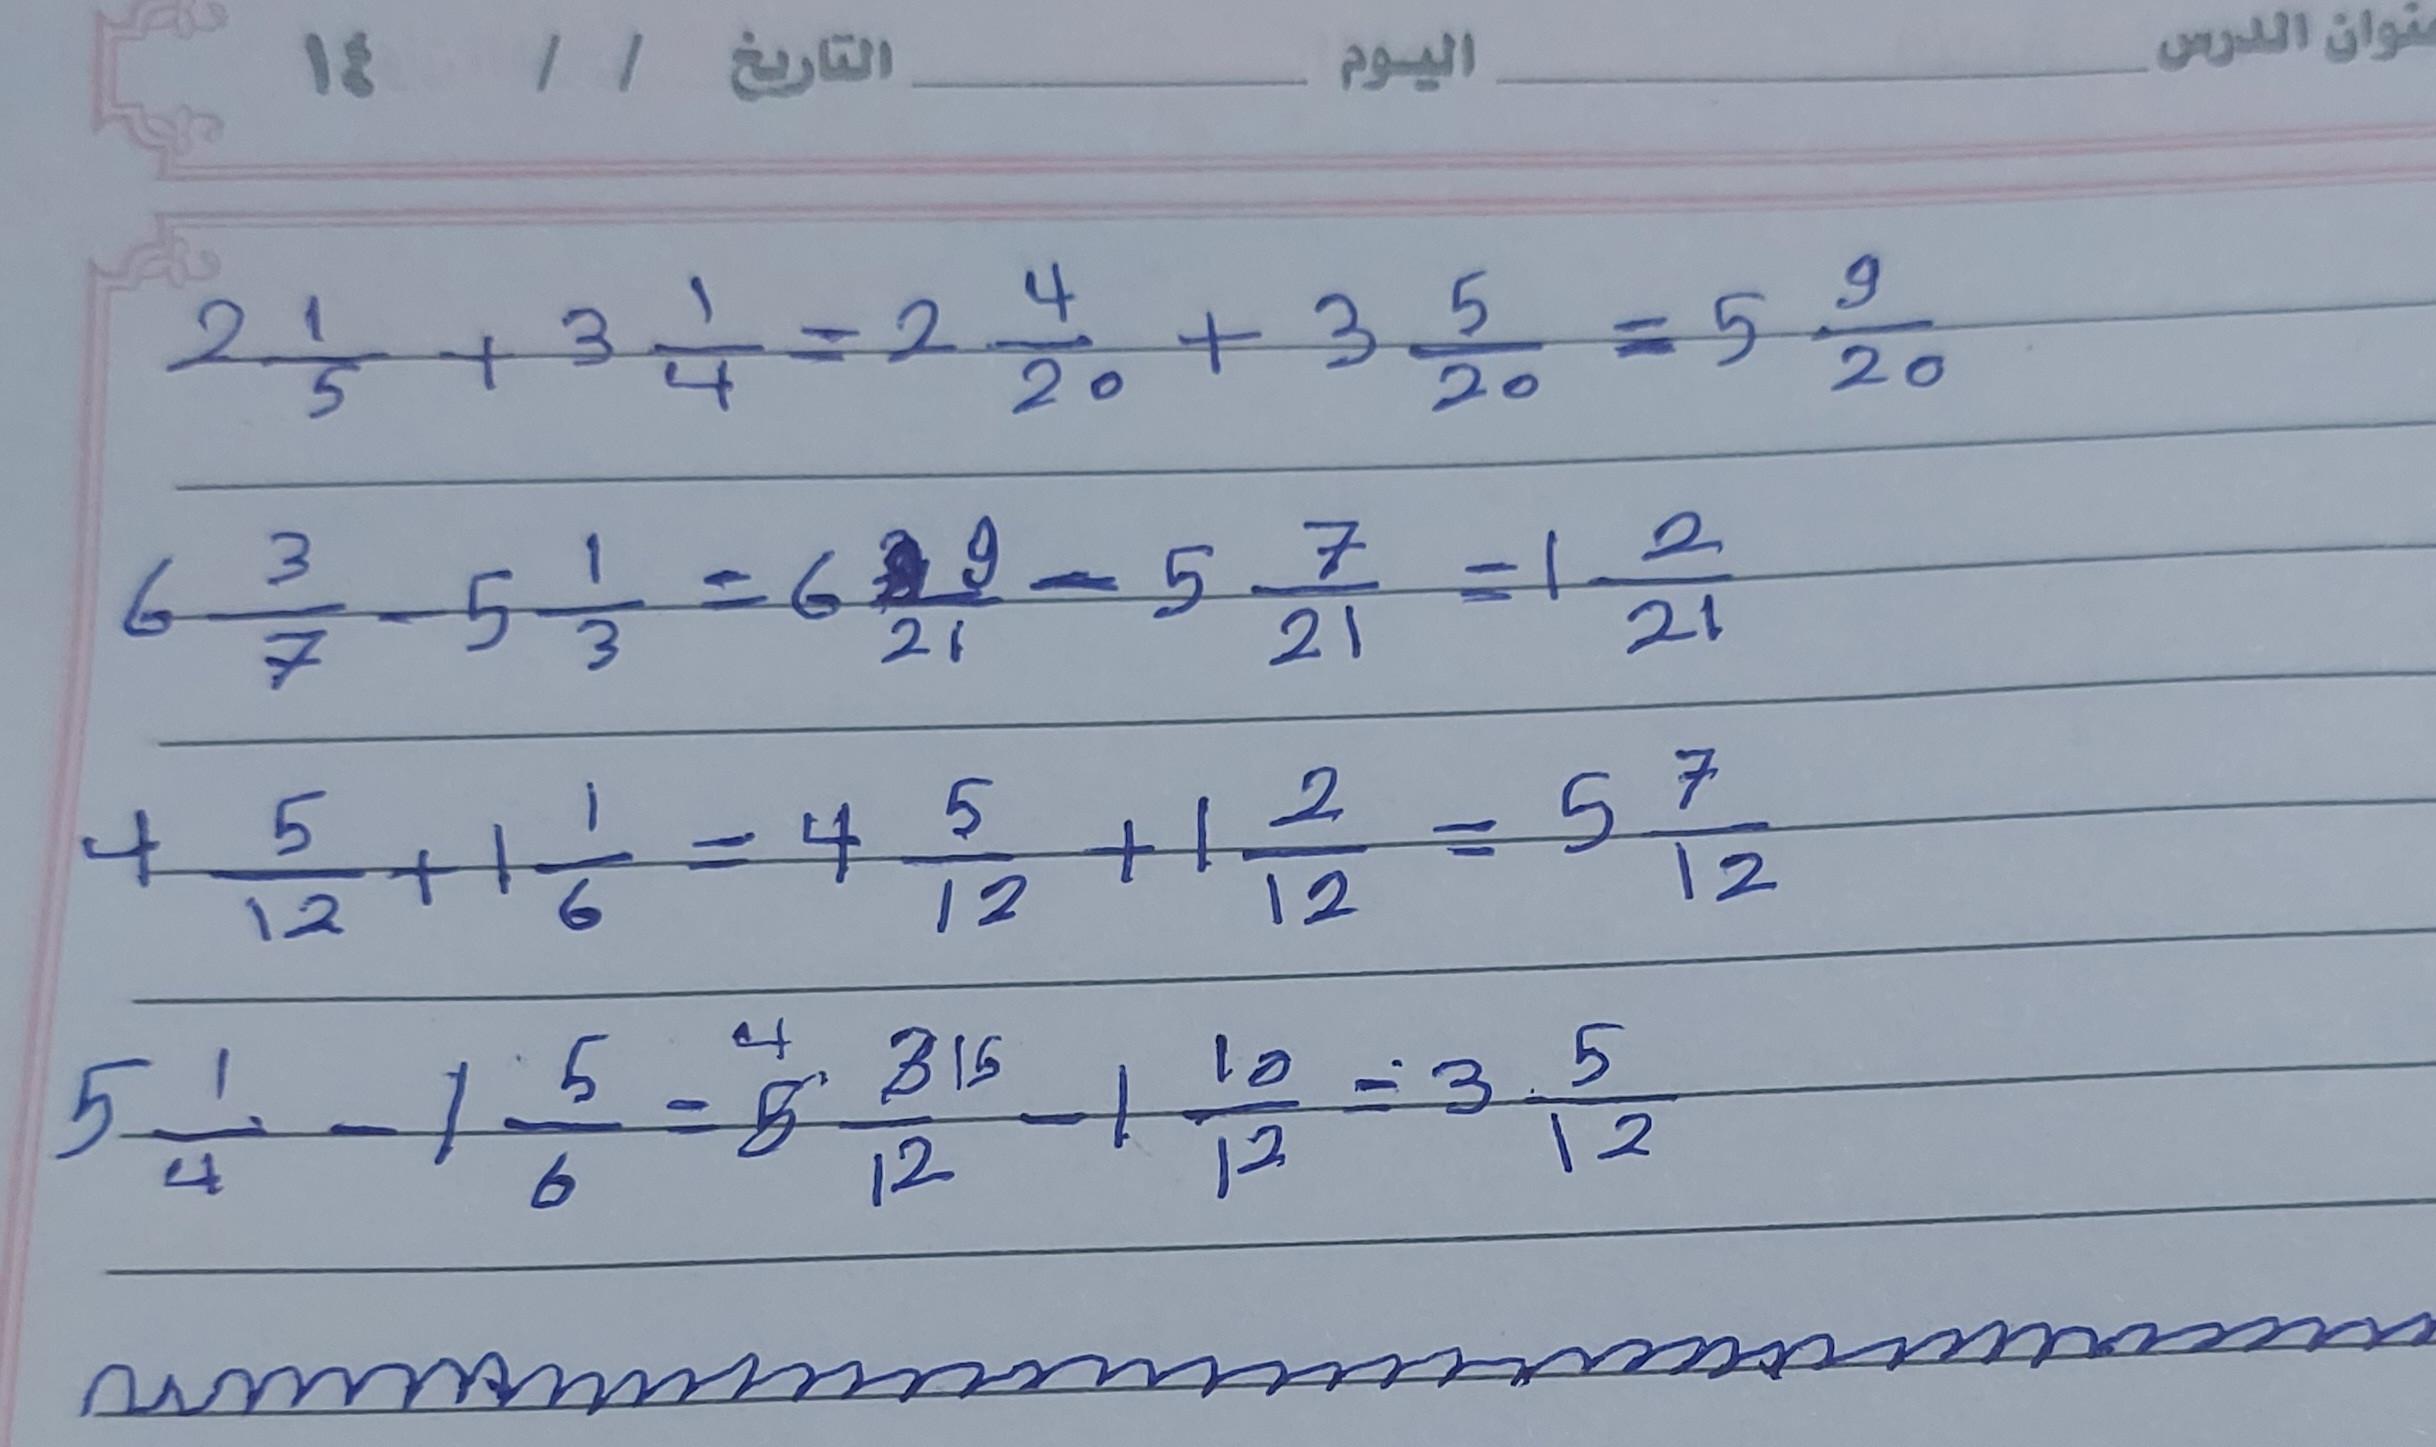 عنوان الدرس اليوم التاريخ / / ١٤
2 1/5 + 3 1/4 = 2 4/20 + 3 5/20 = 5 9/20
6 3/7 - 5 1/3 = 6 9/21 - 5 7/21 = 1 2/21
4 5/12 + 1 1/6 = 4 5/12 + 1 2/12 = 5 7/12
5 1/4 - 1 5/6 = 4 15/12 - 1 10/12 = 3 5/12